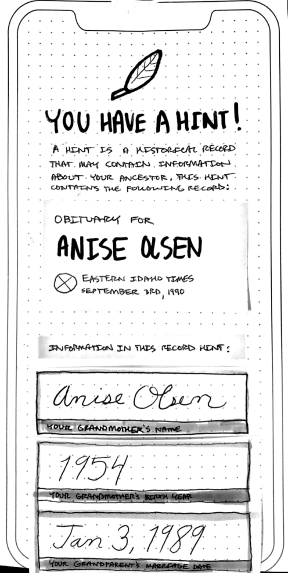 YOU HAVE A HINT!
A HINT IS A HISTORICAL RECORD
THAT MAY CONTAIN INFORMATION
ABOUT YOUR ANCESTOR, THIS HINT
CONTAINS THE FOLLOWING RECORD:
OBITUARY FOR
ANISE OLSEN
EASTERN IDAHO TIMES
SEPTEMBER 3RD, 1990
INFORMATION IN THIS RECORD HINT:
Anise Olsen
YOUR GRANDMOTHER'S NAME
1954
YOUR GRANDMOTHER'S BIRTH YEAR
Jan 3, 1989
YOUR GRANDPARENT'S MARRIAGE DATE